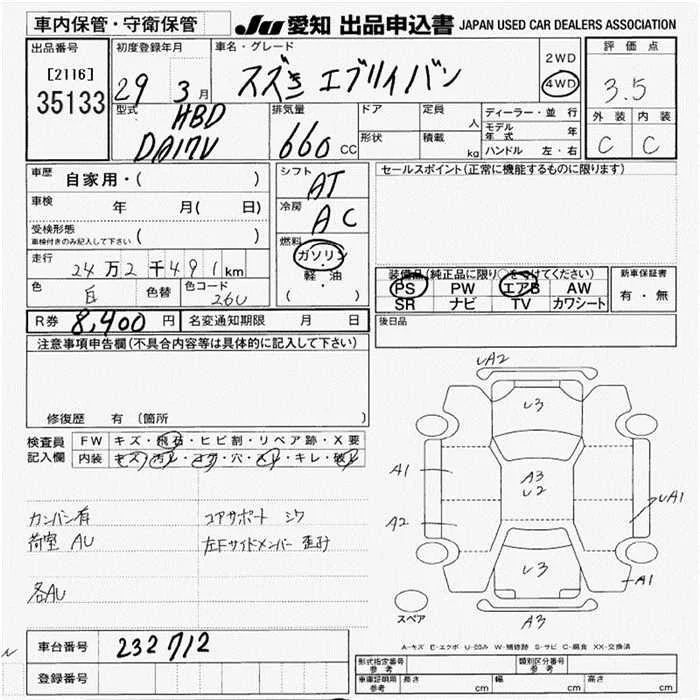 車内保管・守衛保管
JU 愛知 出品申込書 JAPAN USED CAR DEALERS ASSOCIATION
出品番号
[2116]
35133
初度登録年月
29 3月
車名・グレード
スズキ エブリイバン
2WD
4WD
評価点
3.5
外装 内装
C C
型式
HBD
DA17V
排気量
660 CC
ドア
形状
定員
人
積載
kg
ディーラー・並行
モデル年式 年
ハンドル 左・右
車歴 自家用・( )
車検 年 月( 日)
受検形態
車検付きのみ記入して下さい ( )
走行 24万2千491km
色 白 色替 色コード 26U
R券 8,400円 名変通知期限 月 日
シフト
AT
冷房
AC
燃料
ガソリン
・
軽・油
( )
セールスポイント(正常に機能するものに限ります)
装備品(純正品に限り○をつけてください)
PS PW エアB AW
SR ナビ TV カワシート
新車保証書
有・無
後日品
注意事項申告欄(不具合内容等は具体的に記入して下さい)
修復歴 有 (箇所 )
検査員
記入欄
FW キズ・飛石・ヒビ割・リペア跡・X要
内装 キズ・汚レ・コゲ・穴・スレ・キレ・破レ
カンバン有
荷室 AU
各AU
コアサポート シワ
左Fサイドメンバー 歪み
UA2
U3
A1
A3
U2
A2
UA1
U3
A1
A3
スペア
A-キズ E-エクボ U-凹み W-補修跡 S-サビ C-腐食 XX-交換済
車台番号 232712
登録番号
形式指定番号
参考
類別区分番号
参考
車庫証明用
参考
長さ cm 幅 cm 高さ cm